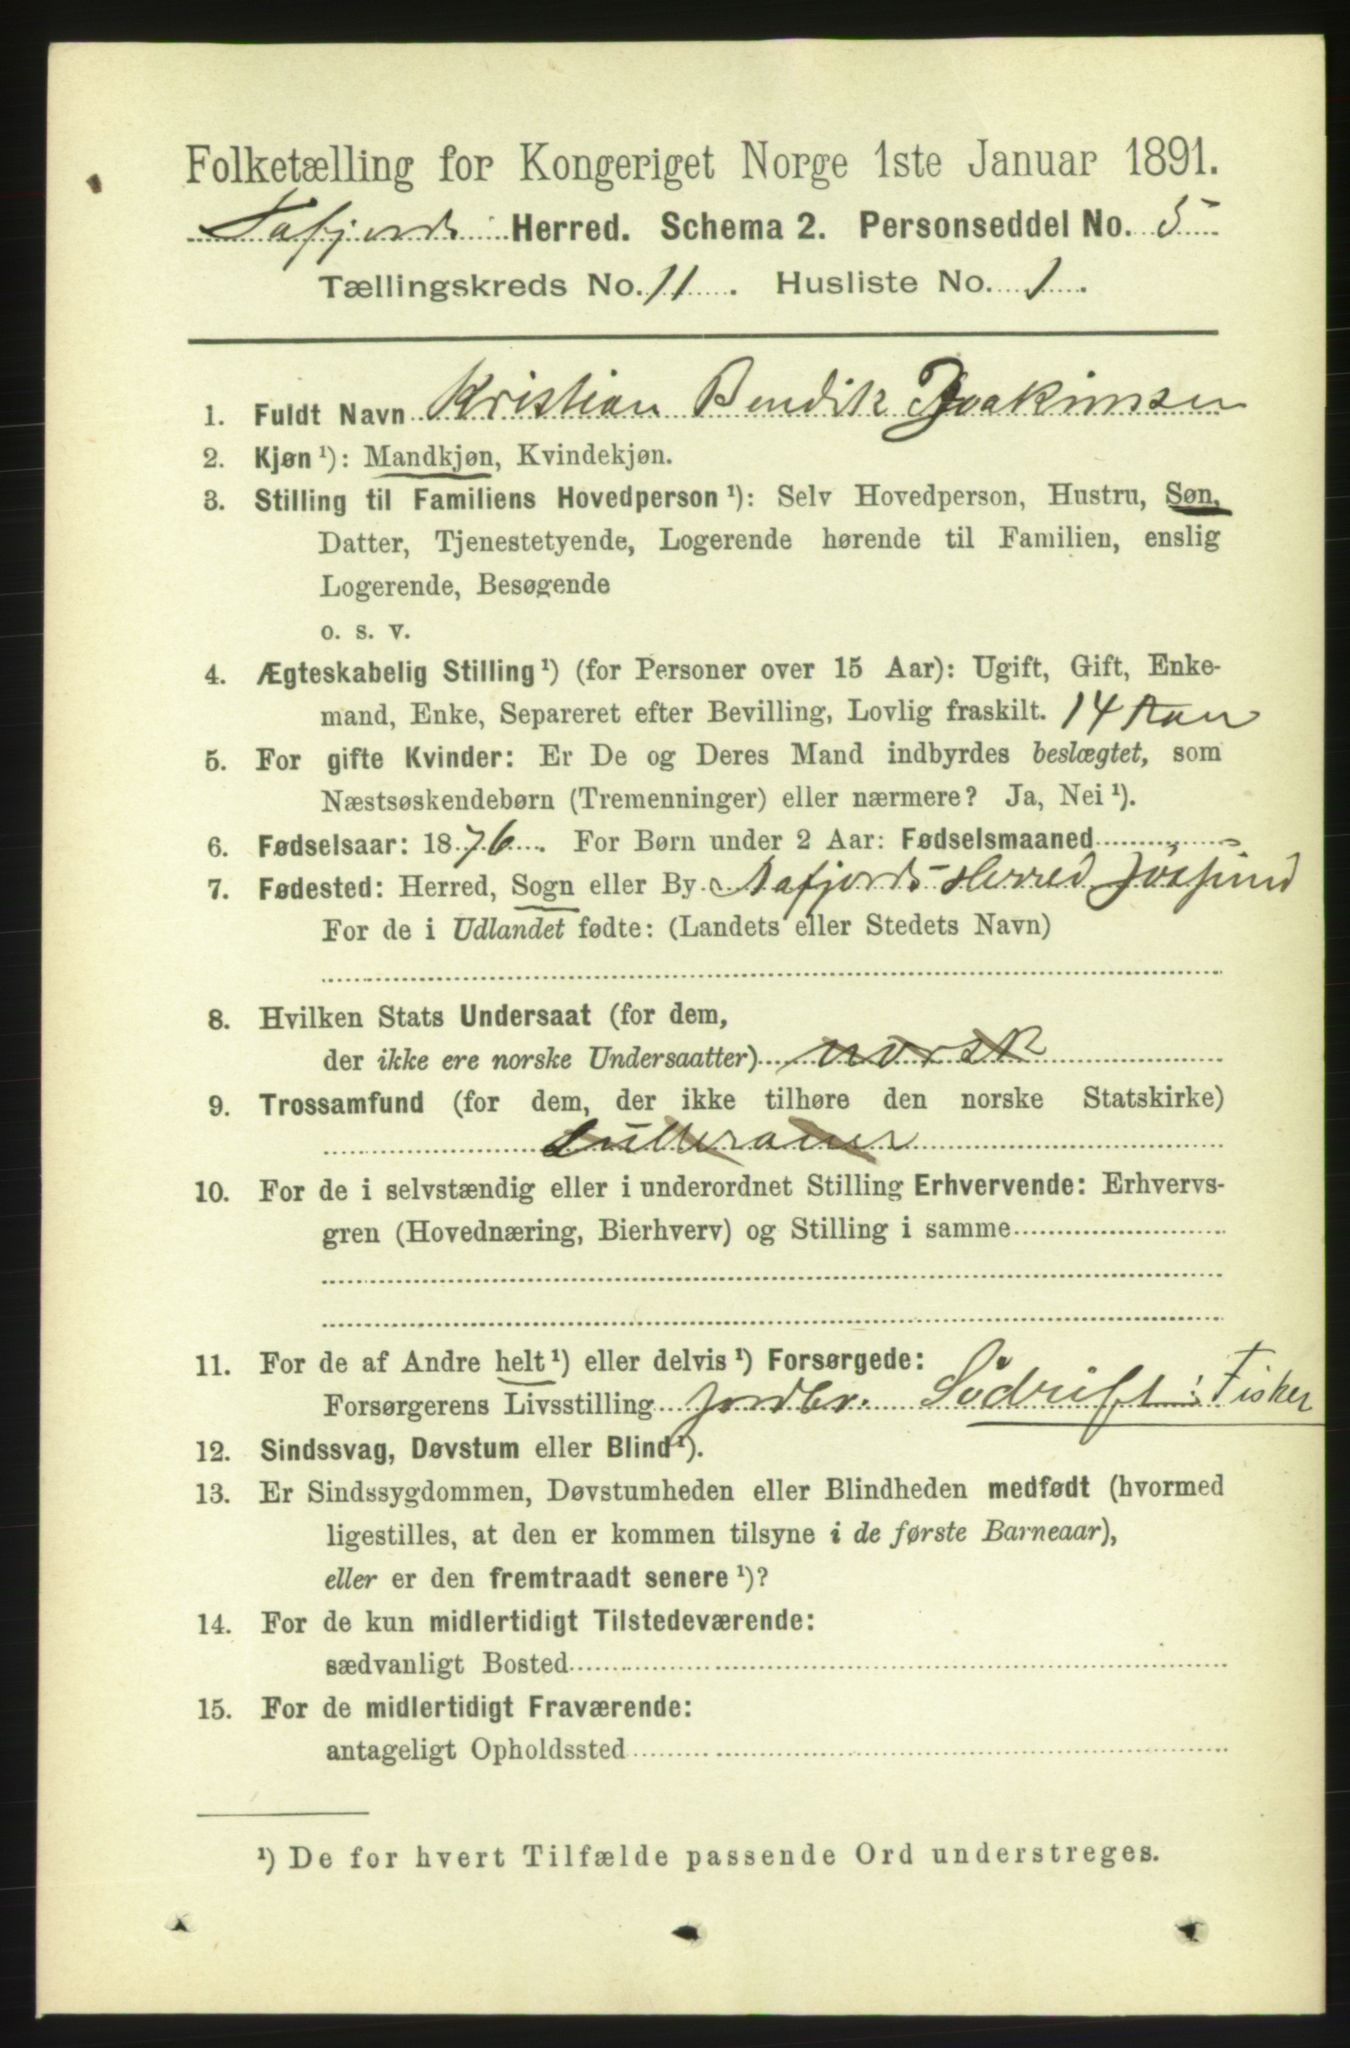 Folketælling for Kongeriget Norge 1ste Januar 1891.
Herred. Schema 2. Personseddel No. 5
Tællingskreds No. 11. Husliste No. 1.
1. Fuldt Navn Kristian Bendik Joakimsen
2. Kjøn ¹): Mandkjøn, Kvindekjøn.
3. Stilling til Familiens Hovedperson ¹): Selv Hovedperson, Hustru, Søn,
Datter, Tjenestetyende, Logerende hørende til Familien, enslig
Logerende, Besøgende
o. s. v.
4. Ægteskabelig Stilling ¹) (for Personer over 15 Aar): Ugift, Gift, Enke-
mand, Enke, Separeret efter Bevilling, Lovlig fraskilt. 14 Aar
5. For gifte Kvinder: Er De og Deres Mand indbyrdes beslægtet, som
Næstsøskendebørn (Tremenninger) eller nærmere? Ja, Nei ¹).
6. Fødselsaar: 1876. For Børn under 2 Aar: Fødselsmaaned
7. Fødested: Herred, Sogn eller By Aafjords Herred Jøssund
For de i Udlandet fødte: (Landets eller Stedets Navn)
8. Hvilken Stats Undersaat (for dem,
der ikke ere norske Undersaatter) norsk
9. Trossamfund (for dem, der ikke tilhøre den norske Statskirke)
Lutheraner
10. For de i selvstændig eller i underordnet Stilling Erhvervende: Erhvervs-
gren (Hovednæring, Bierhverv) og Stilling i samme
11. For de af Andre helt ¹) eller delvis ¹) Forsørgede:
Forsørgerens Livsstilling Jordbr. Södrift: Fisker
12. Sindssvag, Døvstum eller Blind ¹).
13. Er Sindssygdommen, Døvstumheden eller Blindheden medfødt (hvormed
ligestilles, at den er kommen tilsyne i de første Barneaar),
eller er den fremtraadt senere ¹)?
14. For de kun midlertidigt Tilstedeværende:
sædvanligt Bosted
15. For de midlertidigt Fraværende:
antageligt Opholdssted
¹) De for hvert Tilfælde passende Ord understreges.